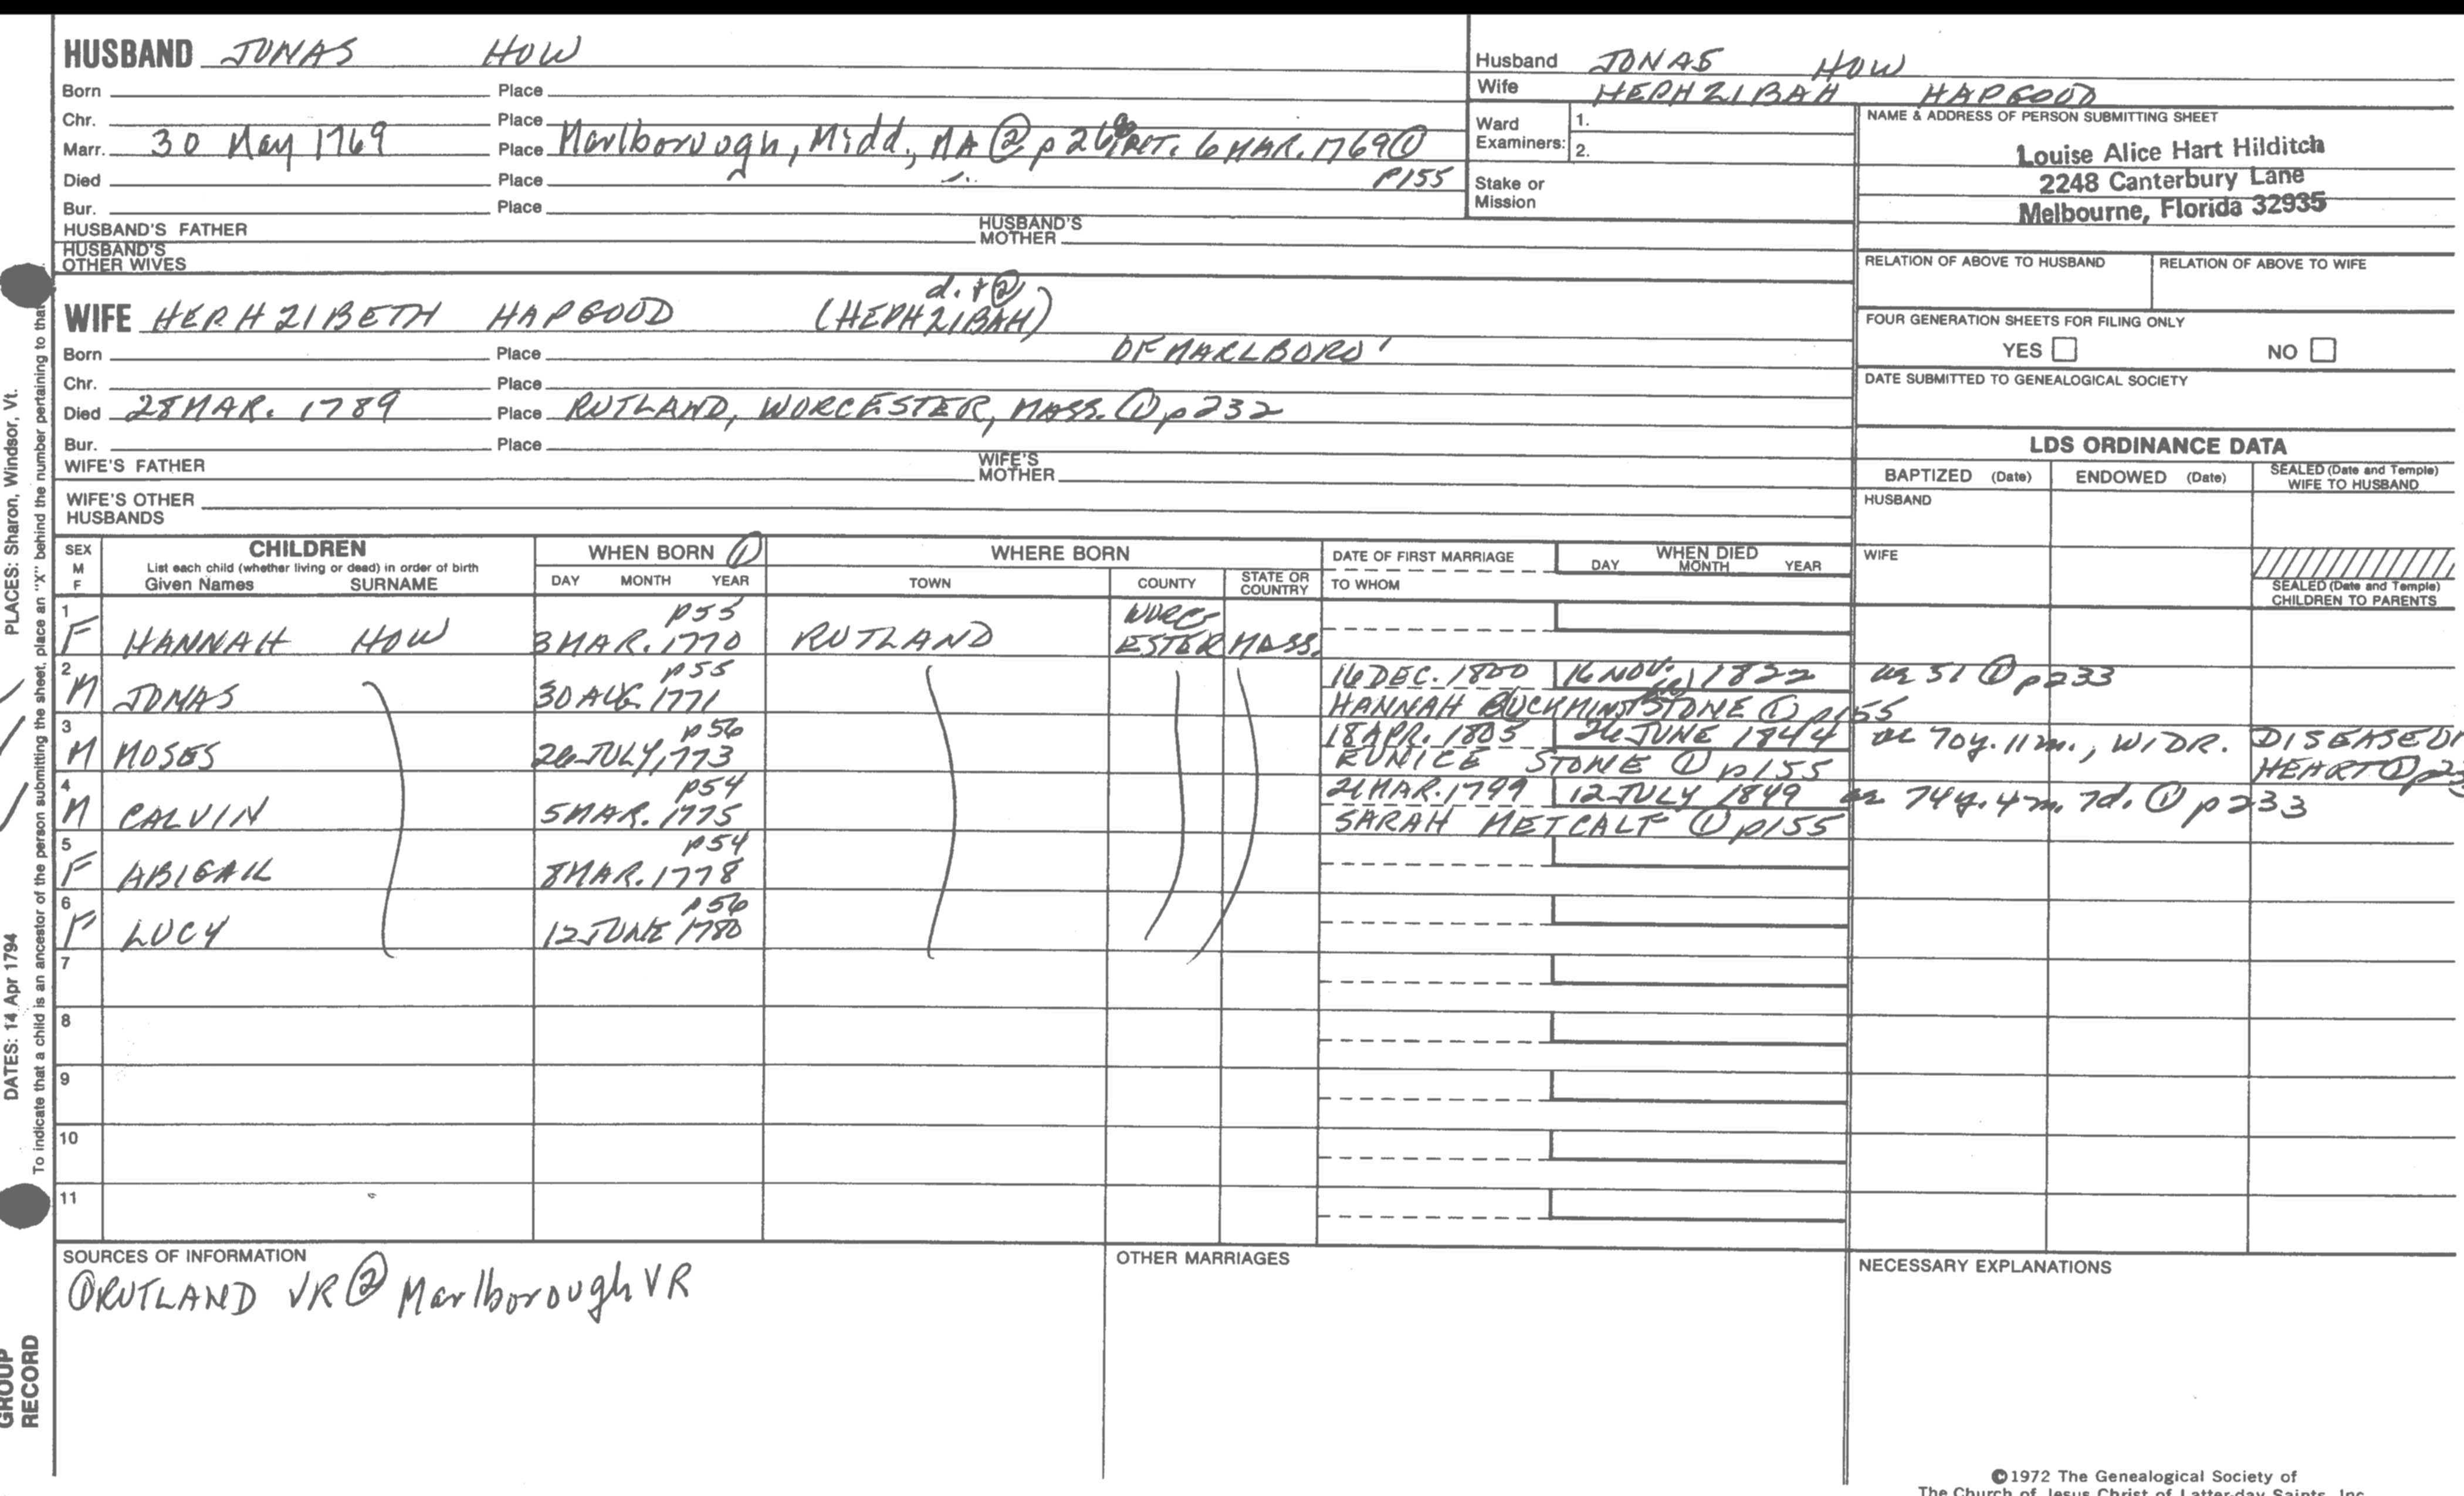 HUSBAND JONAS HOW
Born Place
Chr. Place
Marr. 30 May 1769 Place Marlborough, Midd., MA ② p 26 INT. 6 MAR. 1769 ①
p155
Died Place
Bur. Place
HUSBAND'S FATHER HUSBAND'S MOTHER
HUSBAND'S OTHER WIVES
d. + ②
WIFE HEPHZIBETH HAPGOOD (HEPHZIBAH)
Born Place OF MARLBORO'
Chr. Place
Died 28 MAR. 1789 Place RUTLAND, WORCESTER, MASS. ① p232
Bur. Place
WIFE'S FATHER WIFE'S MOTHER
WIFE'S OTHER HUSBANDS
Husband JONAS HOW
Wife HEPHZIBAH HAPGOOD
Ward Examiners: 1.
2.
Stake or Mission
NAME & ADDRESS OF PERSON SUBMITTING SHEET
Louise Alice Hart Hilditch
2248 Canterbury Lane
Melbourne, Florida 32935
RELATION OF ABOVE TO HUSBAND RELATION OF ABOVE TO WIFE
FOUR GENERATION SHEETS FOR FILING ONLY
YES NO
DATE SUBMITTED TO GENEALOGICAL SOCIETY
LDS ORDINANCE DATA
BAPTIZED (Date) ENDOWED (Date) SEALED (Date and Temple) WIFE TO HUSBAND
HUSBAND
WIFE
SEALED (Date and Temple) CHILDREN TO PARENTS
SEX M F CHILDREN WHEN BORN ① WHERE BORN DATE OF FIRST MARRIAGE WHEN DIED
List each child (whether living or dead) in order of birth
Given Names SURNAME DAY MONTH YEAR TOWN COUNTY STATE OR COUNTRY TO WHOM DAY MONTH YEAR
1 p55 WORC-
F HANNAH HOW 3 MAR. 1770 RUTLAND ESTER MASS.
2 p55 16 DEC. 1800 16 NOV. 1822 ae 51 ① p233
M JONAS 30 AUG. 1771 HANNAH BUCKMINSTER STONE ① p155
3 p56 18 APR. 1805 26 JUNE 1844 ae 70y. 11m., WIDR. DISEASE
M MOSES 26 JULY, 1773 EUNICE STONE ① p155 HEART ①
4 p54 21 MAR. 1799 12 JULY 1849 ae 74y. 4m. 7d. ① p233
M CALVIN 5 MAR. 1775 SARAH METCALF ① p155
5 p54
F ABIGAIL 8 MAR. 1778
6 p56
F LUCY 12 JUNE 1780
7
8
9
10
11
SOURCES OF INFORMATION
① RUTLAND VR ② Marlborough VR
OTHER MARRIAGES
NECESSARY EXPLANATIONS
©1972 The Genealogical Society of
The Church of Jesus Christ of Latter-day Saints, Inc.
PLACES: Sharon, Windsor, Vt.
DATES: 14 Apr 1794
To indicate that a child is an ancestor of the person submitting the sheet, place an "X" behind the number pertaining to that
GROUP
RECORD